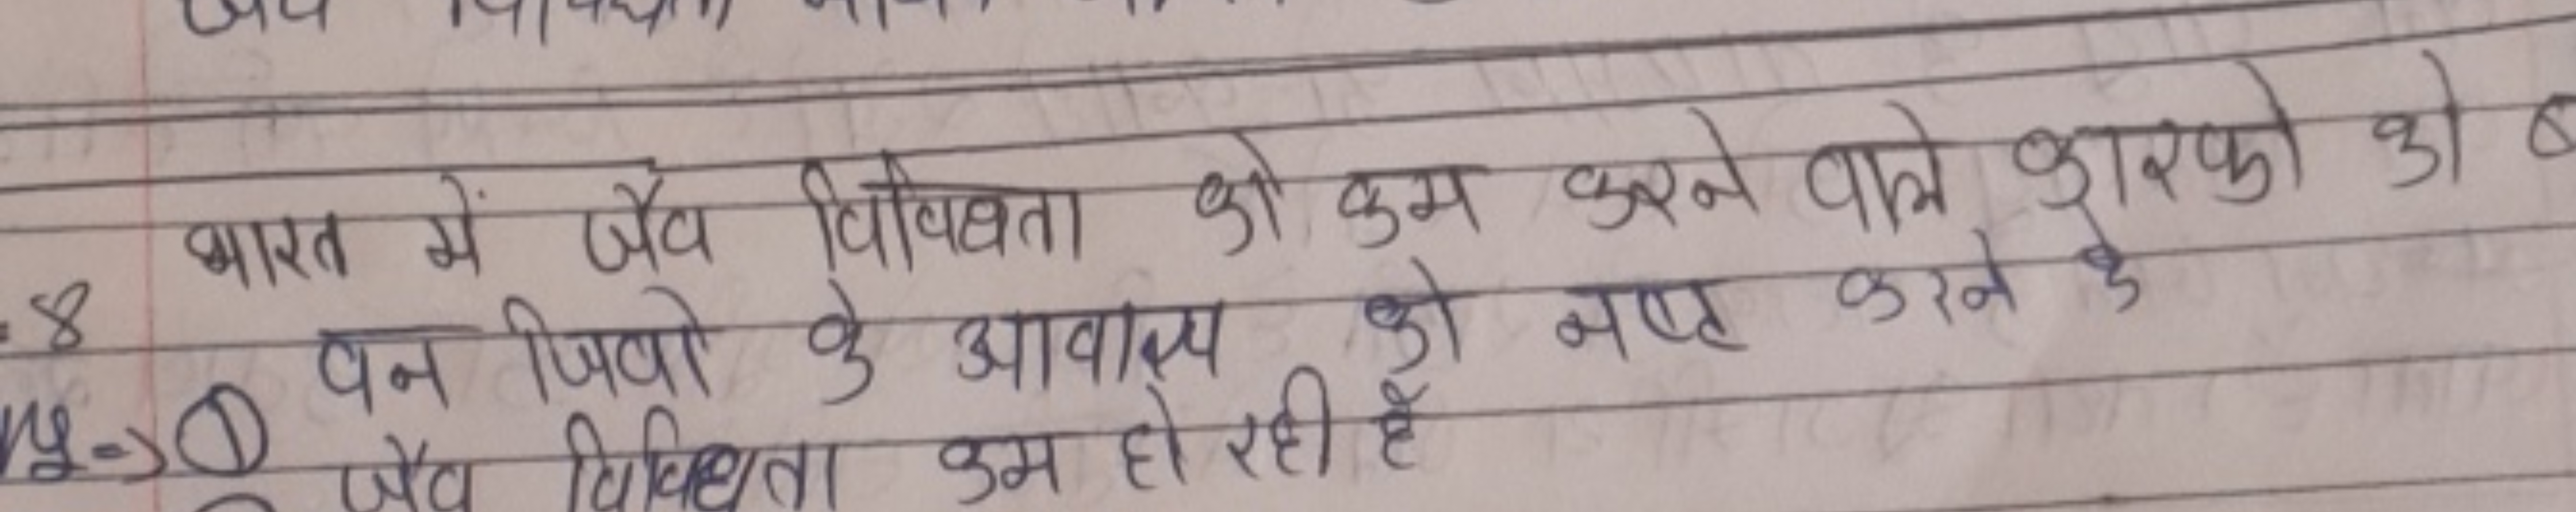 जैव विविधता
भारत में जैव विविधता को कम करने वाले कारको को ब
8
वन जिवो के आवास्य को नष्ट करने के
①
जैव विविधता कम हो रही है